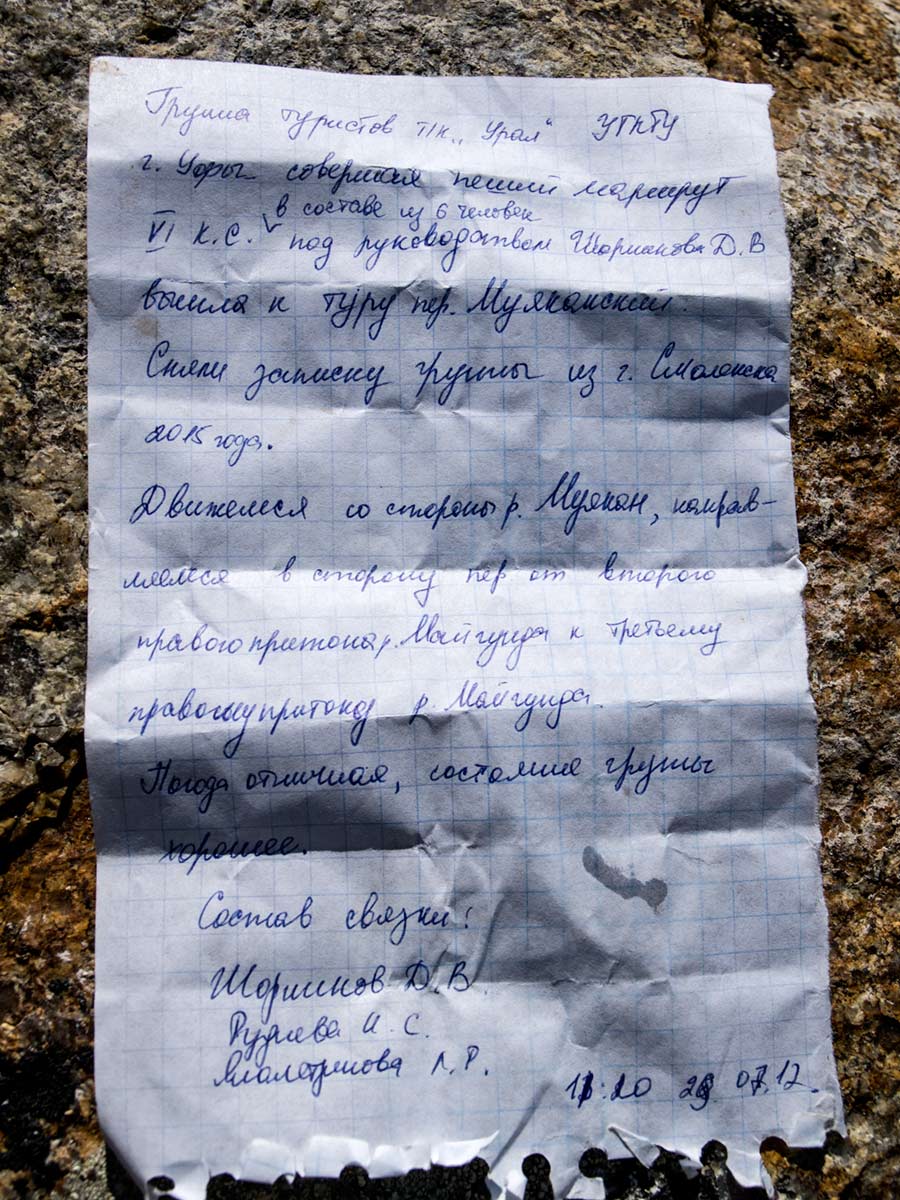 Группа туристов т/к „Урал“ УГНТУ
г. Уфы совершая пеший маршрут
в составе из 6 человек
VI к.с. под руководством Шарманова Д.В
вышла к туру пер. Муяканский.
Сняли записку группы из г. Смоленска
2015 года.
Движемся со стороны р. Муякан, направ-
ляемся в сторону пер от второго
правого притока р. Майгунда к третьему
правому притоку р. Майгунда.
Погода отличная, состояние группы
хорошее.
Состав связки:
Д.В.
И. С.
Л.Р.
20 07.12.